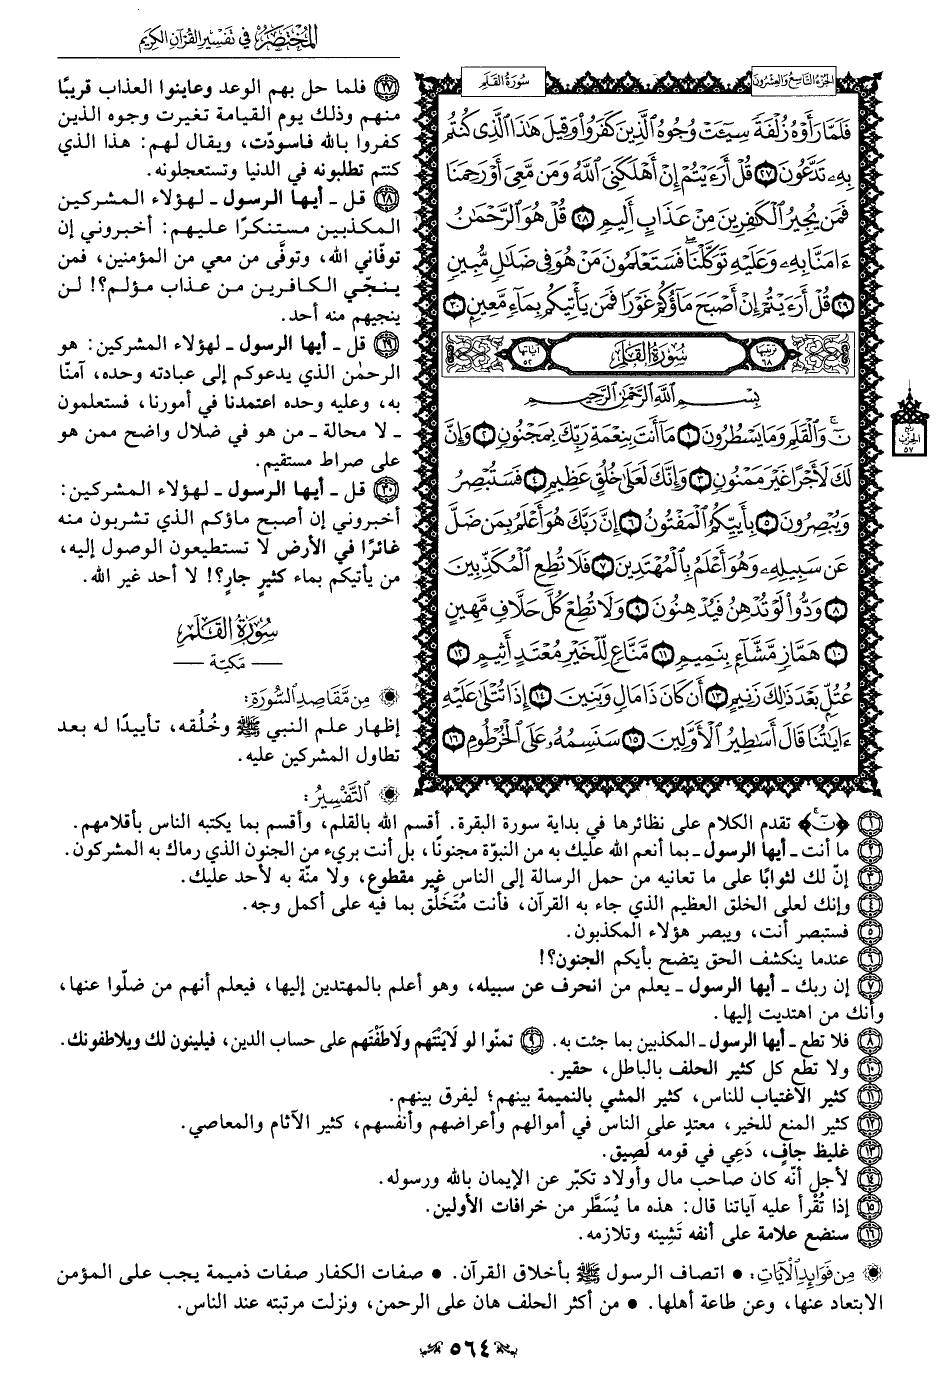 المختصر في تفسير القرآن الكريم
الجزء التاسع والعشرون
سورة القلم
فَلَمَّا رَأَوْهُ زُلْفَةً سِيٓـَٔتْ وُجُوهُ ٱلَّذِينَ كَفَرُوا۟ وَقِيلَ هَٰذَا ٱلَّذِى كُنتُم
بِهِۦ تَدَّعُونَ ٢٧ قُلْ أَرَءَيْتُمْ إِنْ أَهْلَكَنِىَ ٱللَّهُ وَمَن مَّعِىَ أَوْ رَحِمَنَا
فَمَن يُجِيرُ ٱلْكَٰفِرِينَ مِنْ عَذَابٍ أَلِيمٍ ٢٨ قُلْ هُوَ ٱلرَّحْمَٰنُ
ءَامَنَّا بِهِۦ وَعَلَيْهِ تَوَكَّلْنَا ۖ فَسَتَعْلَمُونَ مَنْ هُوَ فِى ضَلَٰلٍ مُّبِينٍ
٢٩ قُلْ أَرَءَيْتُمْ إِنْ أَصْبَحَ مَآؤُكُمْ غَوْرًا فَمَن يَأْتِيكُم بِمَآءٍ مَّعِينٍۭ ٣٠
ترتيبها ٦٨ سورة القلم آياتها ٥٢
بِسْمِ ٱللَّهِ ٱلرَّحْمَٰنِ ٱلرَّحِيمِ
نٓ ۚ وَٱلْقَلَمِ وَمَا يَسْطُرُونَ ١ مَآ أَنتَ بِنِعْمَةِ رَبِّكَ بِمَجْنُونٍ ٢ وَإِنَّ
لَكَ لَأَجْرًا غَيْرَ مَمْنُونٍ ٣ وَإِنَّكَ لَعَلَىٰ خُلُقٍ عَظِيمٍ ٤ فَسَتُبْصِرُ
وَيُبْصِرُونَ ٥ بِأَييِّكُمُ ٱلْمَفْتُونُ ٦ إِنَّ رَبَّكَ هُوَ أَعْلَمُ بِمَن ضَلَّ
عَن سَبِيلِهِۦ وَهُوَ أَعْلَمُ بِٱلْمُهْتَدِينَ ٧ فَلَا تُطِعِ ٱلْمُكَذِّبِينَ
٨ وَدُّوا۟ لَوْ تُدْهِنُ فَيُدْهِنُونَ ٩ وَلَا تُطِعْ كُلَّ حَلَّافٍ مَّهِينٍ
١٠ هَمَّازٍ مَّشَّآءٍۭ بِنَمِيمٍ ١١ مَّنَّاعٍ لِّلْخَيْرِ مُعْتَدٍ أَثِيمٍ ١٢
عُتُلٍّۭ بَعْدَ ذَٰلِكَ زَنِيمٍ ١٣ أَن كَانَ ذَا مَالٍ وَبَنِينَ ١٤ إِذَا تُتْلَىٰ عَلَيْهِ
ءَايَٰتُنَا قَالَ أَسَٰطِيرُ ٱلْأَوَّلِينَ ١٥ سَنَسِمُهُۥ عَلَى ٱلْخُرْطُومِ ١٦
ربع
الحزب
٥٧
٢٧ فلما حل بهم الوعد وعاينوا العذاب قريبًا
منهم وذلك يوم القيامة تغيرت وجوه الذين
كفروا بالله فاسودّت، ويقال لهم: هذا الذي
كنتم تطلبونه في الدنيا وتستعجلونه.
٢٨ قل ـ أيها الرسول ـ لهؤلاء المشركين
المكذبين مستنكرًا عليهم: أخبروني إن
توفّاني الله، وتوفَّى من معي من المؤمنين، فمن
ينجّي الكافرين من عذاب مؤلم؟! لن
ينجيهم منه أحد.
٢٩ قل ـ أيها الرسول ـ لهؤلاء المشركين: هو
الرحمٰن الذي يدعوكم إلى عبادته وحده، آمنّا
به، وعليه وحده اعتمدنا في أمورنا، فستعلمون
ـ لا محالة ـ من هو في ضلال واضح ممن هو
على صراط مستقيم.
٣٠ قل ـ أيها الرسول ـ لهؤلاء المشركين:
أخبروني إن أصبح ماؤكم الذي تشربون منه
غائرًا في الأرض لا تستطيعون الوصول إليه،
من يأتيكم بماء كثيرٍ جارٍ؟! لا أحد غير الله.
سورة القلم
ـ مكية ـ
من مقاصد السورة:
إظهار علم النبي ﷺ وخُلُقه، تأييدًا له بعد
تطاول المشركين عليه.
التفسير:
١ ﴿نٓ ۚ﴾ تقدم الكلام على نظائرها في بداية سورة البقرة. أقسم الله بالقلم، وأقسم بما يكتبه الناس بأقلامهم.
٢ ما أنت ـ أيها الرسول ـ بما أنعم الله عليك به من النبوّة مجنونًا، بل أنت بريء من الجنون الذي رماك به المشركون.
٣ إنّ لك لثوابًا على ما تعانيه من حمل الرسالة إلى الناس غير مقطوع، ولا منّة به لأحد عليك.
٤ وإنك لعلى الخلق العظيم الذي جاء به القرآن، فأنت مُتَخَلِّق بما فيه على أكمل وجه.
٥ فستبصر أنت، ويبصر هؤلاء المكذبون.
٦ عندما ينكشف الحق يتضح بأيكم الجنون؟!
٧ إن ربك ـ أيها الرسول ـ يعلم من انحرف عن سبيله، وهو أعلم بالمهتدين إليها، فيعلم أنهم من ضلّوا عنها،
وأنك من اهتديت إليها.
٨ فلا تطع ـ أيها الرسول ـ المكذبين بما جئت به. ٩ تمنّوا لو لَايَنْتَهم ولَاطَفْتَهم على حساب الدين، فيلينون لك ويلاطفونك.
١٠ ولا تطع كل كثير الحلف بالباطل، حقير.
١١ كثير الاغتياب للناس، كثير المشي بالنميمة بينهم؛ ليفرق بينهم.
١٢ كثير المنع للخير، معتدٍ على الناس في أموالهم وأعراضهم وأنفسهم، كثير الآثام والمعاصي.
١٣ غليظ جافٍ، دَعِي في قومه لَصِيق.
١٤ لأجل أنّه كان صاحب مال وأولاد تكبّر عن الإيمان بالله ورسوله.
١٥ إذا تُقْرأ عليه آياتنا قال: هذه ما يُسَطَّر من خرافات الأولين.
١٦ سنضع علامة على أنفه تَشِينه وتلازمه.
من فوائد الآيات: • اتصاف الرسول ﷺ بأخلاق القرآن. • صفات الكفار صفات ذميمة يجب على المؤمن
الابتعاد عنها، وعن طاعة أهلها. • من أكثر الحلف هان على الرحمن، ونزلت مرتبته عند الناس.
٥٦٤